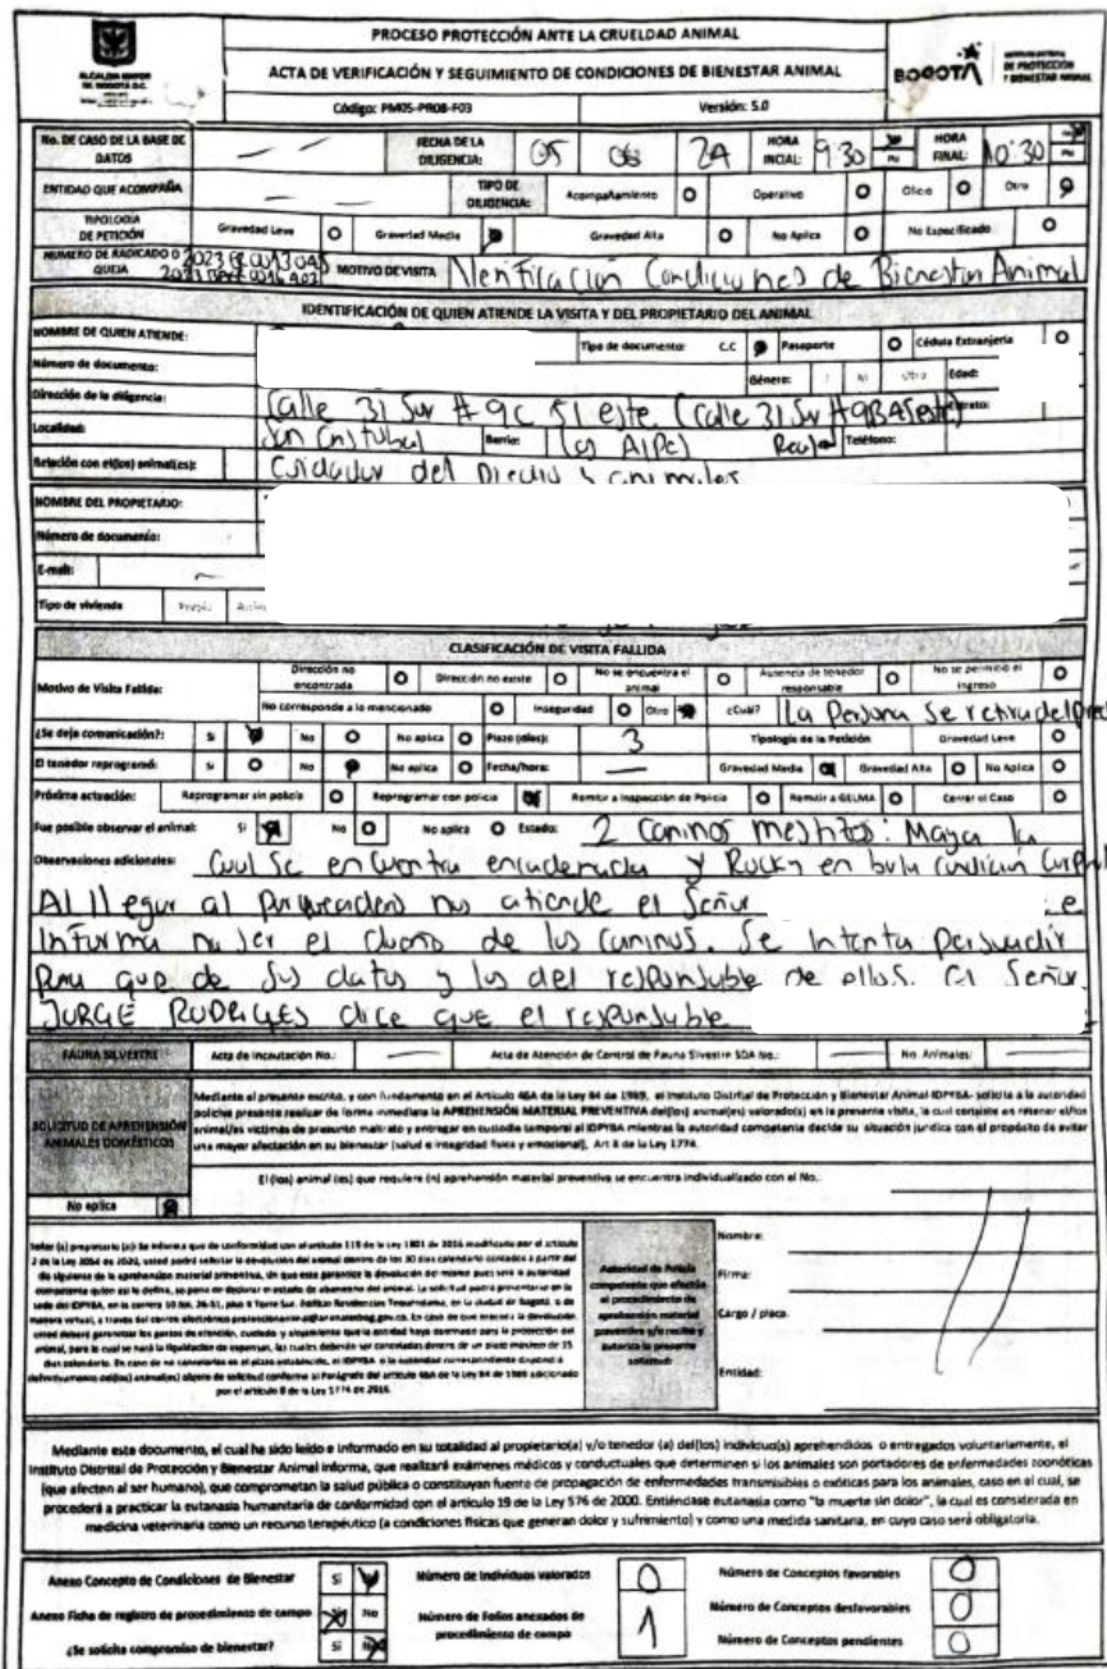 PROCESO PROTECCIÓN ANTE LA CRUELDAD ANIMAL
ALCALDÍA MAYOR
DE BOGOTÁ D.C.
ACTA DE VERIFICACIÓN Y SEGUIMIENTO DE CONDICIONES DE BIENESTAR ANIMAL
BOGOTÁ
DE PROTECCIÓN
Y BIENESTAR ANIMAL
Código: PM05-PR08-F03 Versión: 5.0
No. DE CASO DE LA BASE DE DATOS — — FECHA DE LA DILIGENCIA: 05 06 24 HORA INCIAL: 9:30 PM HORA FINAL: 10:30 PM
ENTIDAD QUE ACOMPAÑA — — TIPO DE DILIGENCIA: Acompañamiento Operativo Oficio Otro
TIPOLOGIA DE PETICIÓN Gravedad Leve Gravedad Media Gravedad Alta No Aplica No Especificado
NUMERO DE RADICADO O QUEJA MOTIVO DE VISITA Verificación Condiciones de Bienestar Animal
IDENTIFICACIÓN DE QUIEN ATIENDE LA VISITA Y DEL PROPIETARIO DEL ANIMAL
NOMBRE DE QUIEN ATIENDE: Tipo de documento: C.C Pasaporte Cédula Extranjería
Número de documento: Género: M Otro Edad:
Dirección de la diligencia: Calle 31 Sur # 9C 51 este (Calle 31 Sur # 9BA5este) Estrato:
Localidad: San Cristobal Barrio: Los Alpes Teléfono:
Relación con el(los) animal(es): Cuidador del Predio y animales
NOMBRE DEL PROPIETARIO:
Número de documento:
E-mail: —
Tipo de vivienda Propia
CLASIFICACIÓN DE VISITA FALLIDA
Motivo de Visita Fallida: Dirección no encontrada Dirección no existe No se encuentra el animal Ausencia de tenedor responsable No se permitió el ingreso
No corresponde a lo mencionado Inseguridad Otro ¿Cuál? La Persona Se retira del pred
¿Se deja comunicación?: Si No No aplica Plazo (días): 3 Tipología de la Petición Gravedad Leve
El tenedor reprogramó: Si No No aplica Fecha/hora: — Gravedad Media Gravedad Alta No Aplica
Próxima actuación: Reprogramar sin policía Reprogramar con policía Remitir a Inspección de Policía Remitir a GELMA Cerrar el Caso
Fue posible observar el animal: Si No No aplica Estado: 2 Caninos mestizos: Maya la
Observaciones adicionales: Cual Se encuentra encadenada y Rocky en condición
Al llegar al parqueadero nos atiende el Señor
Informa no ser el dueño de los caninos. Se intenta persuadir
para que de sus datos y los del responsable de ellos. El Señor
JORGE RODRIGES dice que el responsable
FAUNA SILVESTRE Acta de Incautación No.: — Acta de Atención de Control de Fauna Silvestre SDA No.: — No. Animales: —
SOLICITUD DE APREHENSIÓN ANIMALES DOMÉSTICOS
Mediante el presente escrito, y con fundamento en el Artículo 46A de la Ley 84 de 1989, el Instituto Distrital de Protección y Bienestar Animal IDPYBA- solicita a la autoridad
policiva presente realizar de forma inmediata la APREHENSIÓN MATERIAL PREVENTIVA del(los) animal(es) valorado(s) en la presente visita, la cual consiste en retener el/los
animal/es víctimas de presunto maltrato y entregar en custodia temporal al IDPYBA mientras la autoridad competente decide su situación jurídica con el propósito de evitar
una mayor afectación en su bienestar (salud e integridad física y emocional), Art 8 de la Ley 1774.
El (los) animal (es) que requiere (n) aprehensión material preventiva se encuentra individualizado con el No.:
No aplica
Señor (a) propietario (a): Se informa que de conformidad con el artículo 119 de la Ley 1801 de 2016 modificado por el artículo
2 de la Ley 2054 de 2020, usted podrá solicitar la devolución del animal dentro de los 30 días calendario contados a partir del
día siguiente de la aprehensión material preventiva, sin que esto garantice la devolución del mismo pues será la autoridad
competente quien así lo defina, so pena de declarar el estado de abandono del animal. La solicitud podrá presentarse en la
sede del IDPYBA, en la carrera 10 No. 26-51, piso 8 Torre Sur, Edificio Residencias Tequendama, en la ciudad de Bogotá, o de
definitivamente del(los) animal(es) objeto de solicitud conforme al Parágrafo del artículo 46A de la Ley 84 de 1989 adicionado
por el artículo 8 de la Ley 1774 de 2016.
Autoridad de Policía competente que efectúa el procedimiento de aprehensión material preventiva y/o recibe y autoriza la presente solicitud:
Nombre:
Firma:
Cargo / placa.
Entidad:
Mediante este documento, el cual ha sido leído e informado en su totalidad al propietario(a) y/o tenedor (a) del(los) individuo(s) aprehendidos o entregados voluntariamente, el
Instituto Distrital de Protección y Bienestar Animal informa, que realizará exámenes médicos y conductuales que determinen si los animales son portadores de enfermedades zoonóticas
(que afecten al ser humano), que comprometan la salud pública o constituyan fuente de propagación de enfermedades transmisibles o exóticas para los animales, caso en el cual, se
procederá a practicar la eutanasia humanitaria de conformidad con el artículo 19 de la Ley 576 de 2000. Entiéndase eutanasia como "la muerte sin dolor", la cual es considerada en
medicina veterinaria como un recurso terapéutico (a condiciones físicas que generan dolor y sufrimiento) y como una medida sanitaria, en cuyo caso será obligatoria.
Anexo Concepto de Condiciones de Bienestar Si Número de Individuos valorados 0 Número de Conceptos favorables 0
Anexo Ficha de registro de procedimiento de campo No Número de Folios anexados de procedimiento de campo 1 Número de Conceptos desfavorables 0
¿Se solicita compromiso de bienestar? Si Número de Conceptos pendientes 0